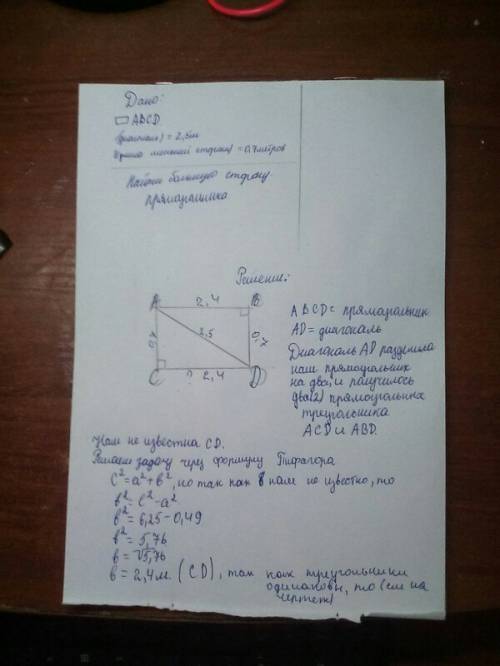 Дано:
▭ ABCD
(диагональ) = 2,5м
меньшей стороны) = 0,7 метров
Найти большую сторону
прямоугольника
Решение:
A 2,4 B
0,7 2,5 0,7
C ? 2,4 D
ABCD = прямоугольник
AD = диагональ
Диагональ AD разделила
наш прямоугольник
на два, и получилось
два(2) прямоугольных
треугольника
ACD и ABD.
Нам не известна CD.
Решаем задачу через формулу Пифагора
C²=a²+b², но так как b нам не известно, то
b²=c²-a²
b²=6,25-0,49
b²=5,76
b=√5,76
b=2,4м. (CD), так как треугольники
одинаковы, то (см на
чертеж)